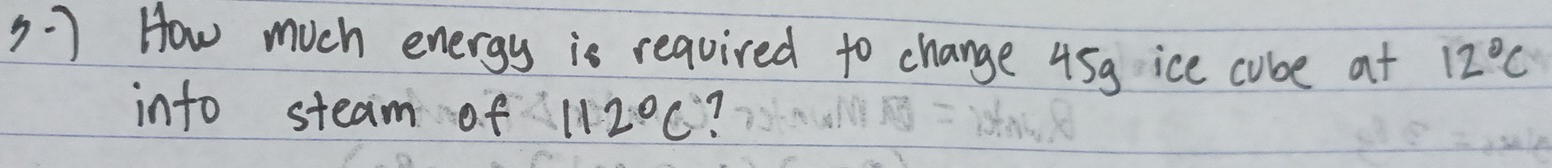 5-) How much energy is required to change 45g ice cube at 12°C
into steam of 112°C?